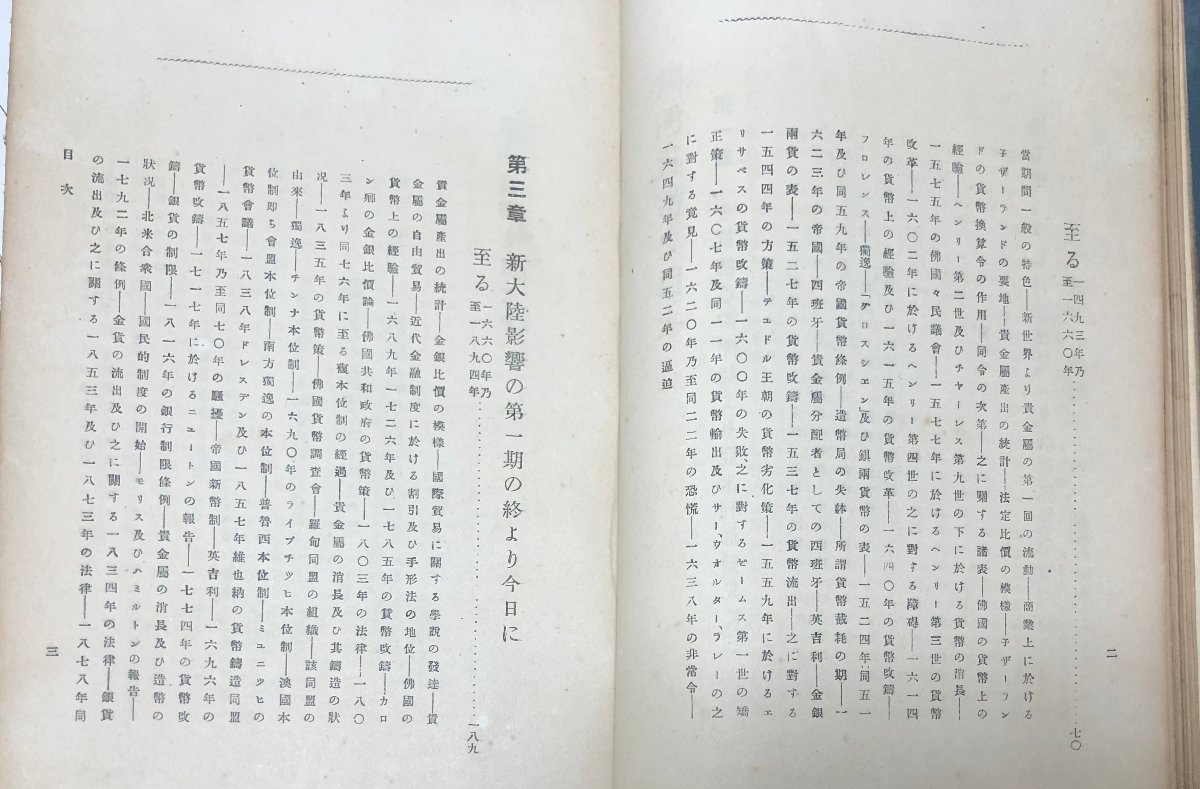 至る 一四九三年乃至一六六〇年……………七〇
當期間一般の特色――新世界より貴金屬の第一回の流動――商業上に於ける
子ザーランドの要地――貴金屬產出の統計――法定比價の模樣――子ザーラン
ドの貨幣換算令の作用――同令の次第――之に關する諸表――佛國の貨幣上の
經驗――ヘンリー第二世及ひチヤーレス第九世の下に於ける貨幣の消長――
一五七五年の佛國々民議會――一五七七年に於けるヘンリー第三世の貨幣
改革――一六〇二年に於けるヘンリー第四世の之に對する障碍――一六一四
年の貨幣上の經驗及ひ一六一五年の貨幣改革――一六四〇年の貨幣改鑄――
フロレンス――獨逸――「グロスシエン」及ひ鎭兩貨幣の表――一五二四年、同五一
年及ひ同五九年の帝國貨幣條例――造幣局の失躰――所謂貨幣截耗の期――一
六二三年の帝國――四班牙――貴金屬分配者としての西班牙――英吉利――金銀
兩貨の表――一五二七年の貨幣改鑄――一五三七年の貨幣流出――之に對する
一五四四年の方策――テユドル王朝の貨幣劣化策――一五五九年に於けるエ
リサベスの貨幣改鑄――一六〇〇年の失敗、之に對するゼームス第一世の矯
正策――一六〇七年及同一一年の貨幣輸出及ひサー、ウオルター、ラレーの之
に對する意見――一六二〇年乃至同二二年の恐慌――一六三八年の非常令――
一六四九年及ひ同五二年の逼迫
二
第三章 新大陸影響の第一期の終より今日に
至る 一六六〇年乃至一八九四年……………一八九
貴金屬產出の統計――金銀比價の模樣――國際貿易に關する學說の發達――貴
金屬の自由貿易――近代金融制度に於ける割引及ひ手形法の地位――佛國の
貨幣上の經驗――一六八九年一七二六年及ひ一七八五年の貨幣改鑄――カロ
ン卿の金銀比價論――佛國共和政府の貨幣策――一八〇三年の法律――一八〇
三年より同七六年に至る複本位制の經過――貴金屬の消長及ひ其鑄造の狀
况――一八三五年の貨幣策――佛國貨幣調査會――羅甸同盟の組織――該同盟の
由來――獨逸――チンナ本位制――一六九〇年のライプチツヒ本位制――澳國本
位制卽ち會盟本位制――南方獨逸の本位制――普魯西本位制――ミユニツヒの
貨幣會議――一八三八年ドレスデン及ひ一八五七年維也納の貨幣鑄造同盟
――一八五七年乃至同七〇年の騷擾――帝國新幣制――英吉利――一六九六年の
貨幣改鑄――一七一七年に於けるニユートンの報告――一七七四年の貨幣改
鑄――銀貨の制限――一八一六年の銀行制限條例――貴金屬の消長及ひ造幣の
狀况――北米合衆國――國民的制度の開始――モリス及ひハミルトンの報告――
一七九二年の條例――金貨の流出及ひ之に關する一八三四年の法律――銀貨
の流出及ひ之に關する一八五三年及ひ一八七三年の法律――一八七八年同
目次
三